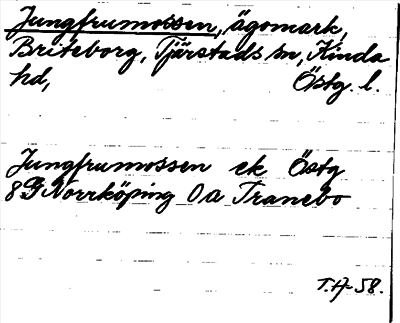 Jungfrumossen, ägomark,
Briteborg, Tjärstads sn, Kinda
hd, Östg. l.
Jungfrumossen ek Östg
8G Norrköping 0a Tranebo
T.H-58.